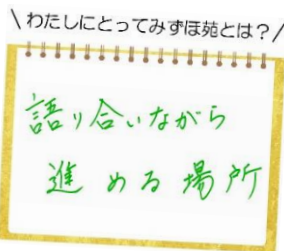 \わたしにとってみずほ苑とは？/
語り合いながら
進める場所